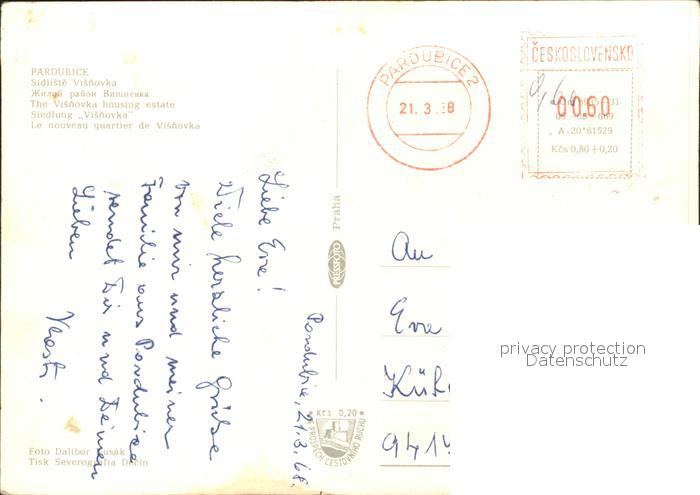 PARDUBICE
Sídliště Višňovka
Жилой район Вишневка
The Višňovka housing estate
Siedlung „Višňovka"
Le nouveau quartier de Višňovka
PARDUBICE 2
21. 3. 68
ČESKOSLOVENSKO
0060
A-20*61529
Kčs 0,80+0,20
Pardubice, 21.3.68.
Liebe Eva!
Viele herzliche Grüsse
von mir und meiner
Familie aus Pardubice
sendet Dir und Deinen
Lieben
Vlasti.
PRESSFOTO Praha
An
Eva
Küh
941
privacy protection
Datenschutz
Kčs 0,20
VE PROSPĚCH CESTOVNÍHO RUCHU
Foto Dalibor
Tisk Severografia Děčín